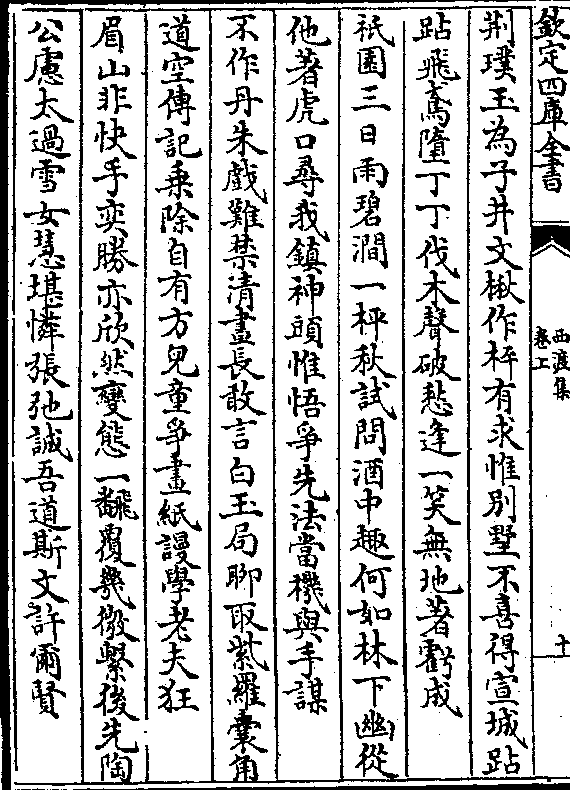 欽定四庫全書
西渡集
卷上
十
荆璞玉為子井文楸作枰有求惟別墅不喜得宣城跕
跕飛鳶墮丁丁伐木聲破愁逢一笑無地著虧成
祇園三日雨碧澗一枰秋試問酒中趣何如林下幽從
他著虎口尋我鎮神頭惟悟爭先法當機與手謀
不作丹朱戲難禁清晝長敢言白玉局聊取紫羅囊角
道空傳記乗除自有方兒童爭畫紙謾學老夫狂
眉山非快手奕勝亦欣然變態一翻覆幾微繫後先陶
公慮太過雪女慧堪憐張弛誠吾道斯文許爾賢